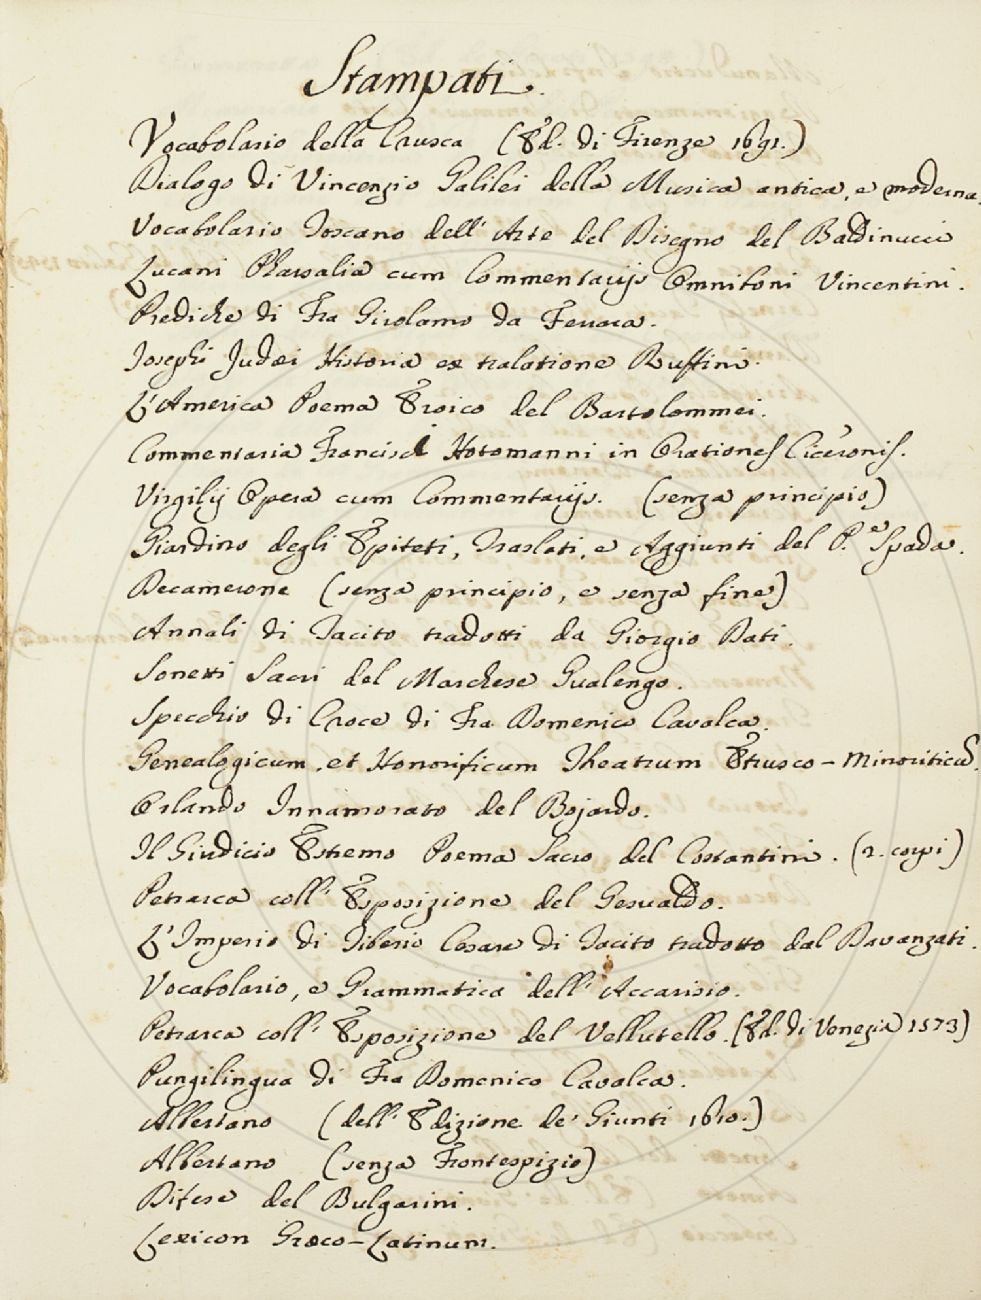 Stampati.
Vocabolario della Crusca (Ed. di Firenze 1691.)
Dialogo di Vincenzio Galilei della Musica antica, e moderna.
Vocabolario Toscano dell' Arte del Disegno del Baldinucci
Lucani Pharsalia cum Commentarijs Omniboni Vincentini.
Prediche di Fra Girolamo da Ferrara.
Josephi Judæi Historia ex tralatione Ruffini.
L'America Poema Eroico del Bartolommei.
Commentaria Francisci Hotomanni in Orationes Ciceronis.
Virgilij Opera cum Commentarijs. (senza principio)
Giardino degli Epiteti, Traslati, e Aggiunti del P.e Spada.
Decamerone (senza principio, e senza fine)
Annali di Tacito tradotti da Giorgio Dati.
Sonetti Sacri del Marchese Gualengo.
Specchio di Croce di Fra Domenico Cavalca.
Genealogicum, et Honorificum Theatrum Etrusco-Minoriticū.
Orlando Innamorato del Bojardo.
Il Giudicio Estremo Poema Sacro del Costantini. (2. corpi)
Petrarca coll' Esposizione del Gesualdo.
L'Imperio di Tiberio Cesare di Tacito tradotto dal Davanzati.
Vocabolario, e Grammatica dell' Accarisio.
Petrarca coll' Esposizione del Vellutello. (Ed. di Venezia 1573)
Pungilingua di Fra Domenico Cavalca.
Albertano (dell' Edizione de' Giunti 1610.)
Albertano (senza Frontespizio)
Difese del Bulgarini.
Lexicon Græco-Latinum.